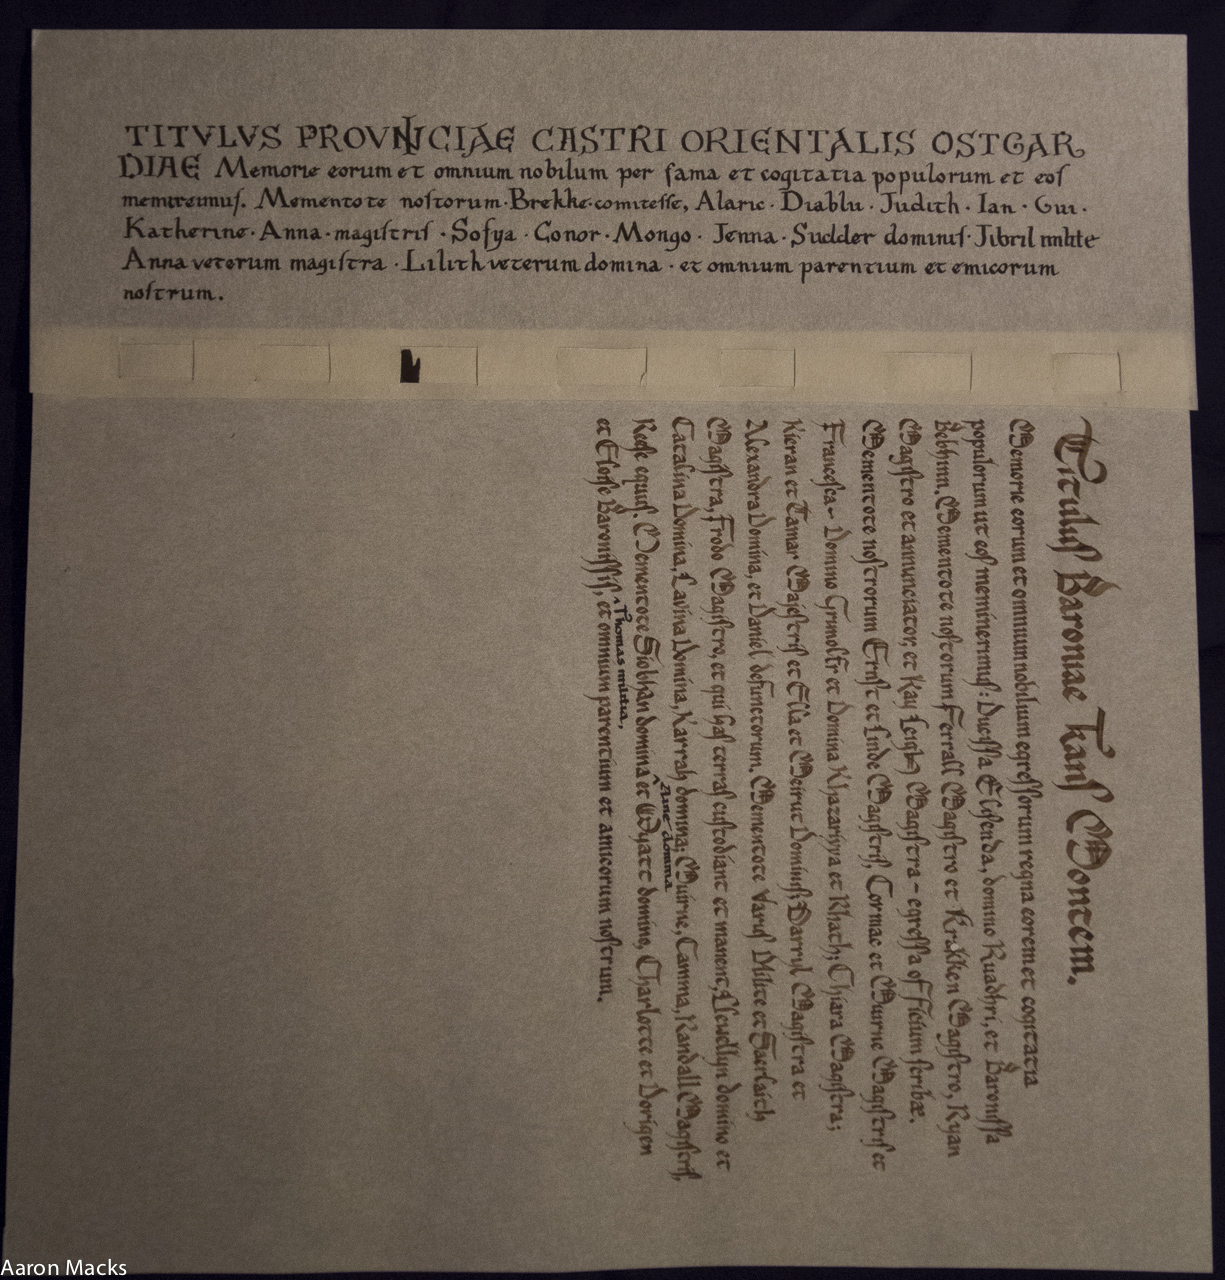 TITVLVS PROVINCIAE CASTRI ORIENTALIS OSTGAR
DIAE Memorie eorum et omnium nobilum per fama et cogitatia populorum et eos
memineimus. Mementote nostorum · Brekke · comitesse, Alaric · Diablu · Judith · Ian · Gui ·
Katherine · Anna · magistris · Sofya · Conor · Mongo · Jenna · Sudder dominis · Jibril milite
Anna veterum magistra · Lilith veterum domina · et omnium parentium et emicorum
nostrum.
Titulus Baroniae Trans Montem.
Memorie eorum et omnium nobilium egressorum regna eorem et cogitatia
populorum ut eos meminerimus: Ducissa Elisenda, domino Ruadhri, et Baronissa
Bebhinn. Mementote nostorum Ferrall Magistro et Krakken Magistro, Ryan
Magistro et annunciator, et Kay Leigh Magistra - egressa officium scribæ.
Mementote nostrorum Ernst et Linde Magistris, Cormac et Muirne Magistris et
Francesca - Domino Grimolfr et Domina Khazariyya et Rhath; Chiara Magistra;
Kieran et Tamar Majestris et Ella et Meirut Dominis; Darryl Magistra et
Alexandra Domina, et Daniel defunctorum. Mementote Varus Milite et Saerlaith
Magistra, Frodo Magistro, et qui has terras custodiant et manent; Llewellyn domino et
Catalina Domina, Lavina Domina, Karrah domina; Muirne, Camma, Randall Magistris,
Aine domina
equis. Mementote Siobhan domina et Wyatt domino, Charlotte et Dorigen
Thomas militia,
et Eloise Baronissis, et omnium parentium et amicorum nostrum.
Aaron Macks